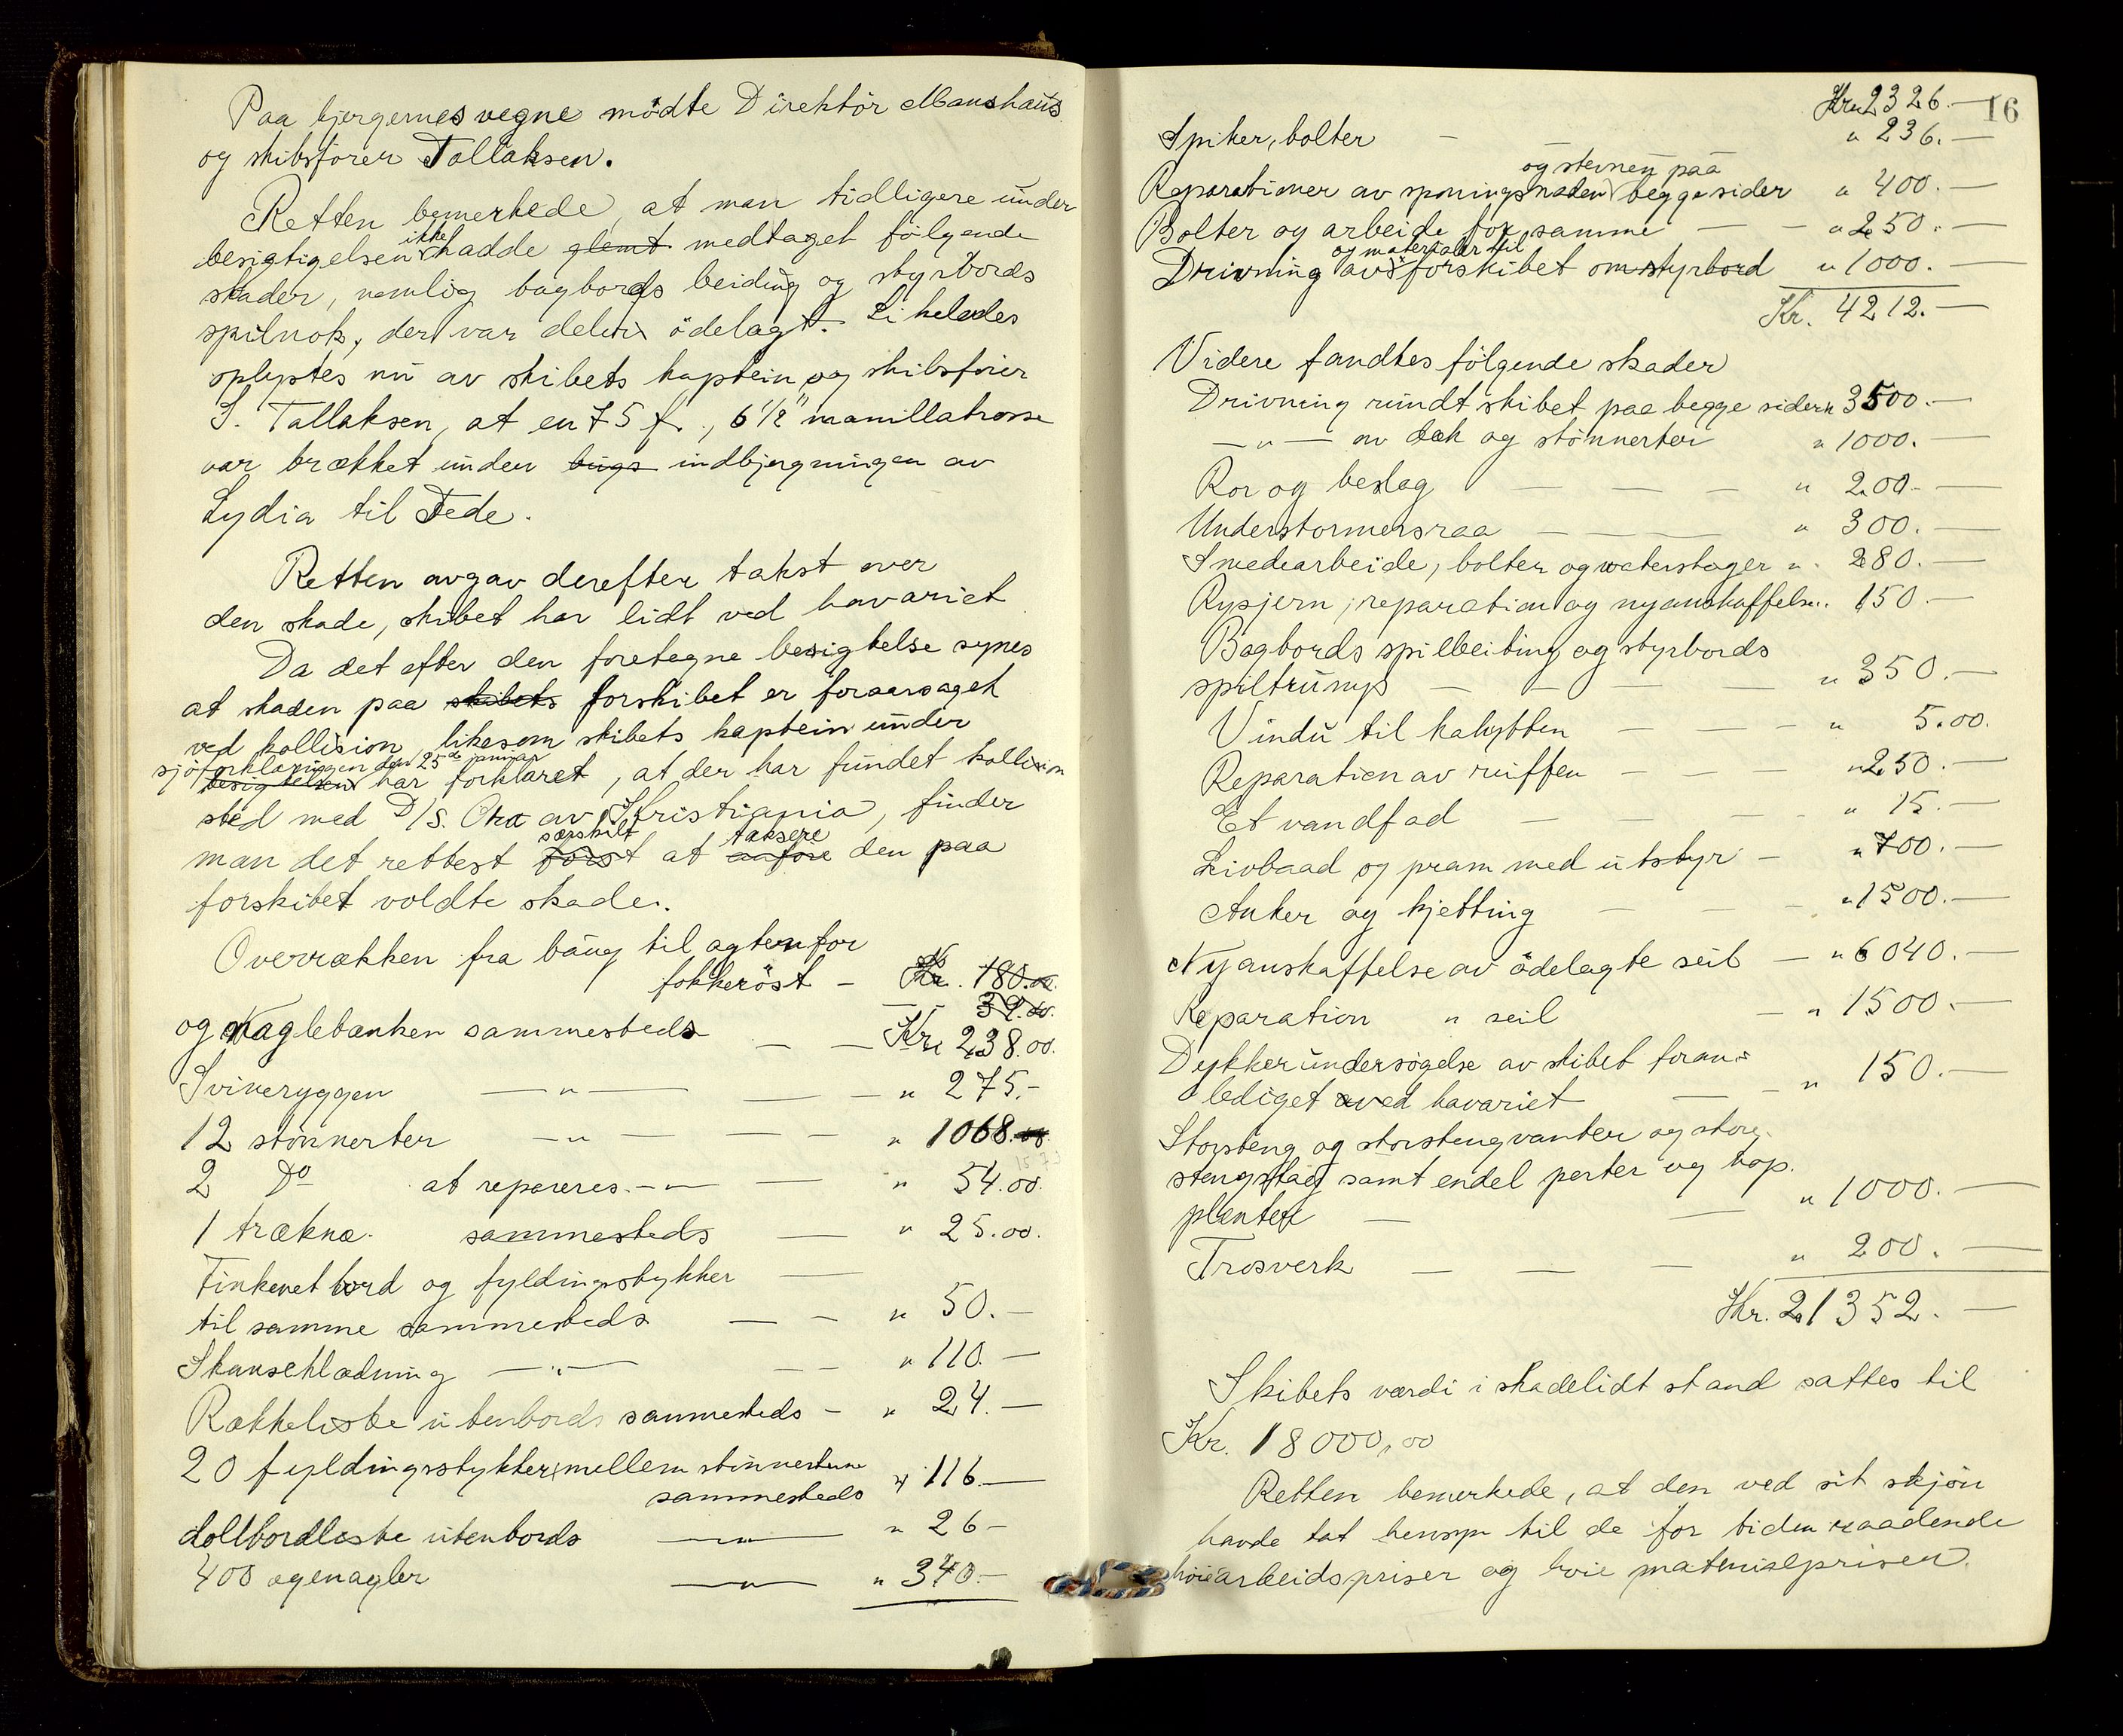 Paa bjergernes vegne mödte Direktör Manshaus
og skibsförer Tallaksen.
Retten bemerkede, at man tidligere under
besigtigelsen ikke hadde glemt medtaget fölgende
skader, nemlig bagbords beiding og styrbords
spilnok, der var delvis ödelagt. Likeledes
oplystes nu av skibets kaptein og skibsförer
S. Tallaksen, at en 75 f., 6 1/2" manillatrosse
var brækket under bugs indbjergningen av
Lydia til Fede.
Retten avgav derefter takst over
den skade, skibet har lidt ved havariet
Da det efter den foretagne besigtelse synes
at skaden paa skibets forskibet er foraarsaget
ved kollision, likesom skibets kaptein under
sjöforklaringen den 25de januar
besigtelsen har forklaret, at der har fundet kollision
sted med D/S. Ora av Kristiania, finder
man det rettest særskilt först at taksere anföre den paa
forskibet voldte skade.
Overrækken fra baug til agtenfor
fokkeröst - Kr. 180.00
39.00.
og Naglebanken sammesteds — — Kr. 238.00.
Svineryggen —"— — — " 275.-
12 stönnerter —"— — — " 1068.00
2 Do at repareres. —"— — " 54.00.
1 trækna. sammesteds — " 25.00.
Finkenet bord og fyldingsstykker —
til samme sammesteds — — " 50.—
Skanseklædning —"— — — " 110.—
Rækkeliste utenbords sammesteds — " 24.—
20 fyldingsstykker mellem stönnerterne
sammesteds " 116.—
dollbordliste utenbords —"— " 26-
400 egenagler —"— " 340.—
Kr. 2326.—
16
Spiker, bolter — " 236.—
og stevnen paa
Reparationer av sponingsnaden begge sider " 400.—
Bolter og arbeide for samme — — " 250.—
og materialer til
Drivning av forskibet om styrbord " 1000.—
Kr. 4212.—
Videre fandtes fölgende skader
Drivning rundt skibet paa begge sider " 3500.—
—"— av dæk og stönnerter " 1000.—
Ror og beslag — — — " 200.—
Understormersraa — — " 300.—
Smedearbeide, bolter og waterstager " 280.—
Rysjern, reparation og nyanskaffelse " 150.—
Bagbords spilbeiting og styrbords
spiltrumps — — — " 350.—
Vindu til kahytten — — — " 5.00.
Reparation av ruffen — — — " 250.—
Et vandfad — — — — " 15.—
Livbaad og pram med utstyr — " 700.—
Anker og kjetting — — — " 1500.—
Nyanskaffelse av ödelagte seil — " 6040.—
Reparation " seil — " 1500.—
Dykkerundersögelse av skibet foran-
lediget ved havariet — — " 150.—
Storsteng og storstengvanter og stor-
stengstag samt endel perter og top-
plenter — — " 1000.—
Trosverk — — — " 200.—
Kr. 21352.—
Skibets værdi i skadelidt stand sattes til
Kr. 18000,00
Retten bemerkede, at den ved sit skjön
havde tat hensyn til de for tiden raadende
höie arbeidspriser og höie materialpriser.